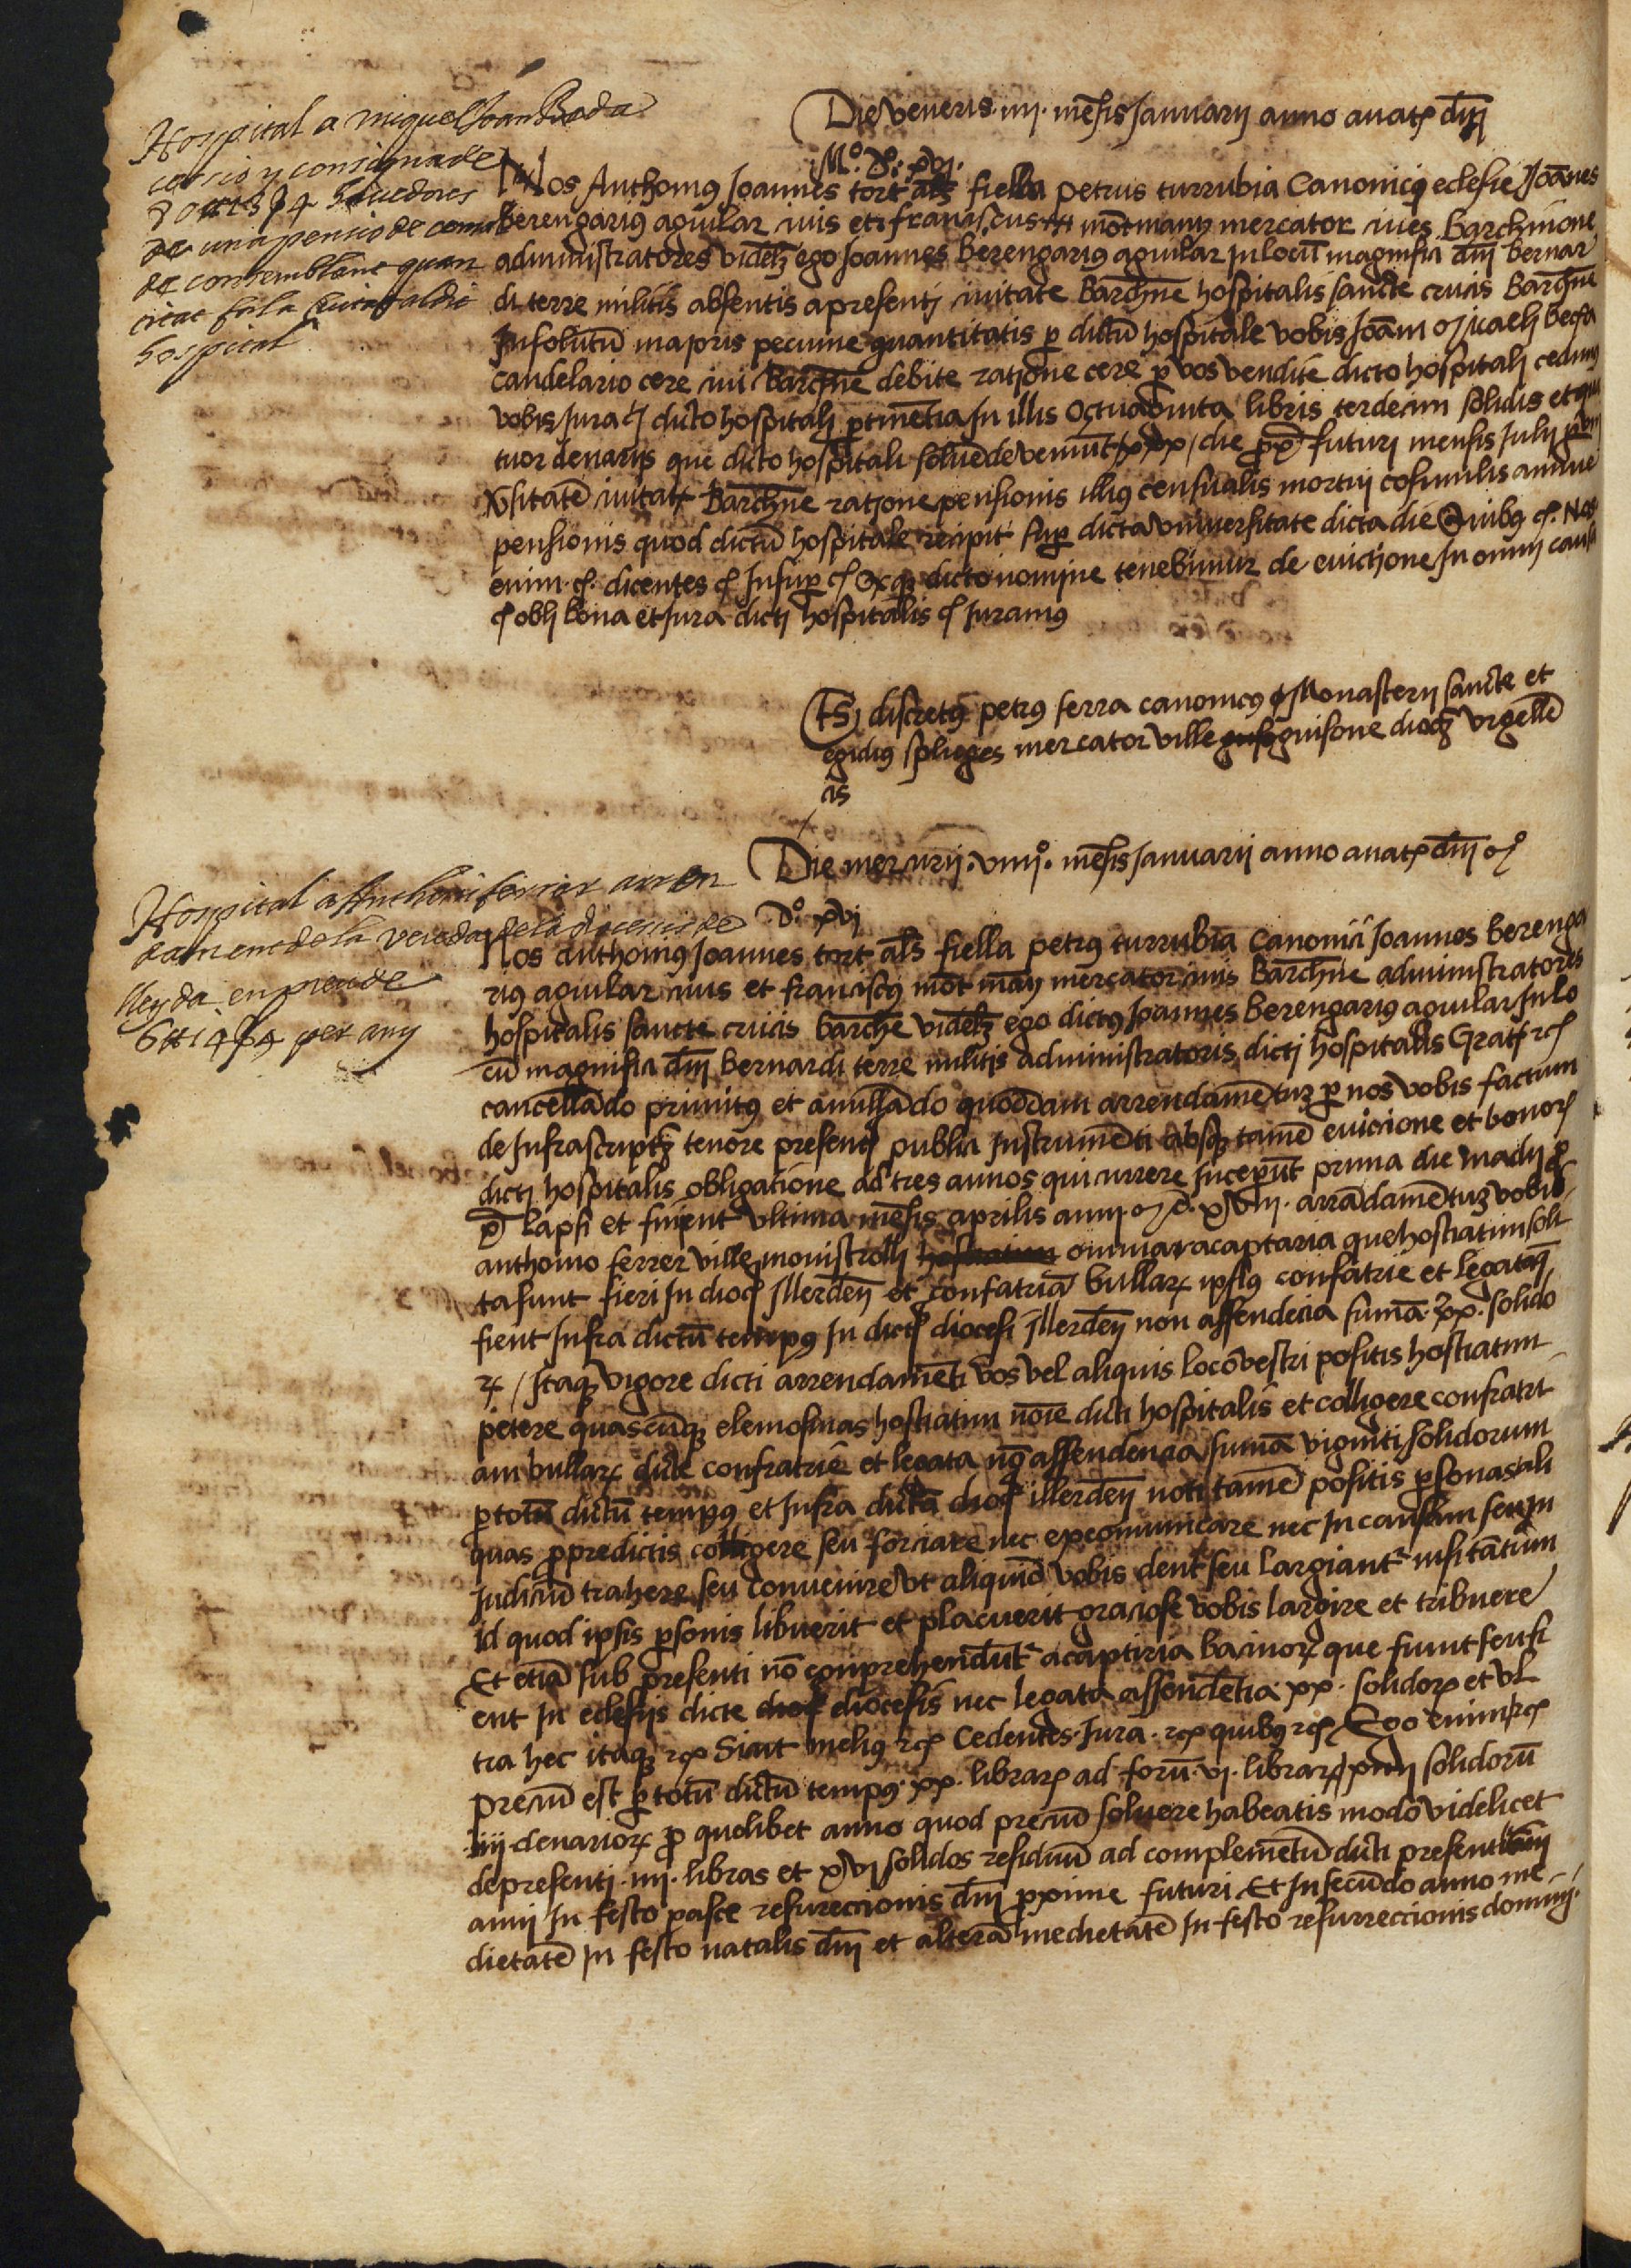 Die veneris iiij mēsis Januarii anno a natᵉ dñi
Mº. Dº. xvj.
Hospital a miquel Joan Boda
cessio y consignade
80 ₶ 13 ß 4 havedores
de una pensio de cens
de consemblant quan
citat fa la Ciutat al dit
hospital
Nos Anthonius Joannes tort als fiella petrus turrubia Canonici ecclesie Joānes
berengarius aguilar civis et franciscus mōtmany mercator cives Barchinone
administratores videlʒ ego Joannes berengarius aguilar in locū magnifici dñi bernar
di terre militis absentis a presenti civitate Barchñe hospitalis sancte crucis Barchñe
In solutū majoris pecunie quantitatis p dictū hospitale vobis Joāni Micaeli beoda
candelario cere civi Barchñe debite ratione cere p vos vendite dicto hospitali cedimus
vobis jura dicto hospitali ptinētia In illis octuaginta libris terdecim solidis et qua
tuor denariis que dicto hospitali solvēde veniūt die pxº futuri mensis Julii p vni
v̄sitatē civitatᵉ Barchñe ratione pensionis illius censualis mortui cōsimilis annue
pensionis quod dictū hospitale recipit sup dicta universitate dicta die Quibus &. Nos
enim & dicentes & Insup & dicto nomine tenebimur de evictione In omni causa
& obli bona et Jura dicti hospitalis & Juramus
Ts) discretus petrus ferra canonicus Monasterii sancte et
egidius splieges mercator ville guisone dioc̄ vrgellē
cis
Die mercurii viiijº mēsis Januarii anno a natᵉ dñi Mº
Dº xvj
Hospital a Anthoni ferrer arren
dament de la vereda de la diocesis de
lleyda en preu de
6 ₶ 14 ß 4 per any
Nos Anthonius Joannes tort als fiella petrus turrubia Canonici Joannes berenga
rius aguilar civis et franciscus mōt māy mercator civis Barchñe administratores
hospitalis sancte crucis barchē videlʒ ego dictus Joannes berengarius aguilar In lo
cū magnifici dñi bernardi terre militis administratoris dicti hospitalis Gratᵉ &
cancellādo primitus et anullādo quoddam arrendamētuʒ p nos vobis factum
de Infrascriptʒ tenore presentis publici Instrumēti absqʒ tamē eviccione et bonoꝝ
dicti hospitalis obligatione ad tres annos qui currere Inceperūt prima die madii
lapsi et finient ultima mēsis aprilis anni M D xviiij arrādamētuʒ vobis
anthonio ferrer ville monistrolli omnia acaptaria que hostiatim soli
ta sunt fieri In dioc̄ Illerdeñ et confatriā bullaꝝ ipsius confatrie et legataqʒ
fient Infra dictū tempus In dictᵉ diocesi Illerdeñ non assendetia sumā xx solido
ꝝ / Itaqʒ vigore dicti arrendamēti vos vel aliquis loco vestri positis hostiatim
petere quascūqʒ elemosinas hostiatim nōie dicti hospitalis et colligere confratri
am bullaꝝ dicte confratrie et legata nō assendencia sumā viginti solidorum
p totū dictū tempus et Infra dictā dioc̄ illerdeñ noti tamē positis psonas ali
quas p predictis colligere seu forciare nec excomunicare nec In causam seu In
Judiciū trahere seu convenire vt aliquid vobis dent seu largiant nisi tātum
Id quod ipsis psonis libuerit et placuerit graciose vobis largire et tribuere
Et etiā sub presenti nō conprehendūt acaptiria bacinoꝝ que fiunt seu fi
ent In eclesiis dicte dioc̄ diocesis nec legata assendētia xx solidoꝝ et vl
tra hec itaqʒ & Sicut melius & Cedentes Jura & quibus & Ego enim &
preciū est p totū dictū tempus xx libraꝝ ad forū vj libraꝝ xiiij solidorū
iiij denarioꝝ p quolibet anno quod preciū solvere habeatis modo videlicet
de presenti iiij libras et xvj solidos residuū ad complemētū dicti presentis
anni In festo pasce resureccionis dñi pxime futuri Et In secūdo anno me-
dietatē In festo natalis dñi et alterā medietatē In festo resurreccionis domini